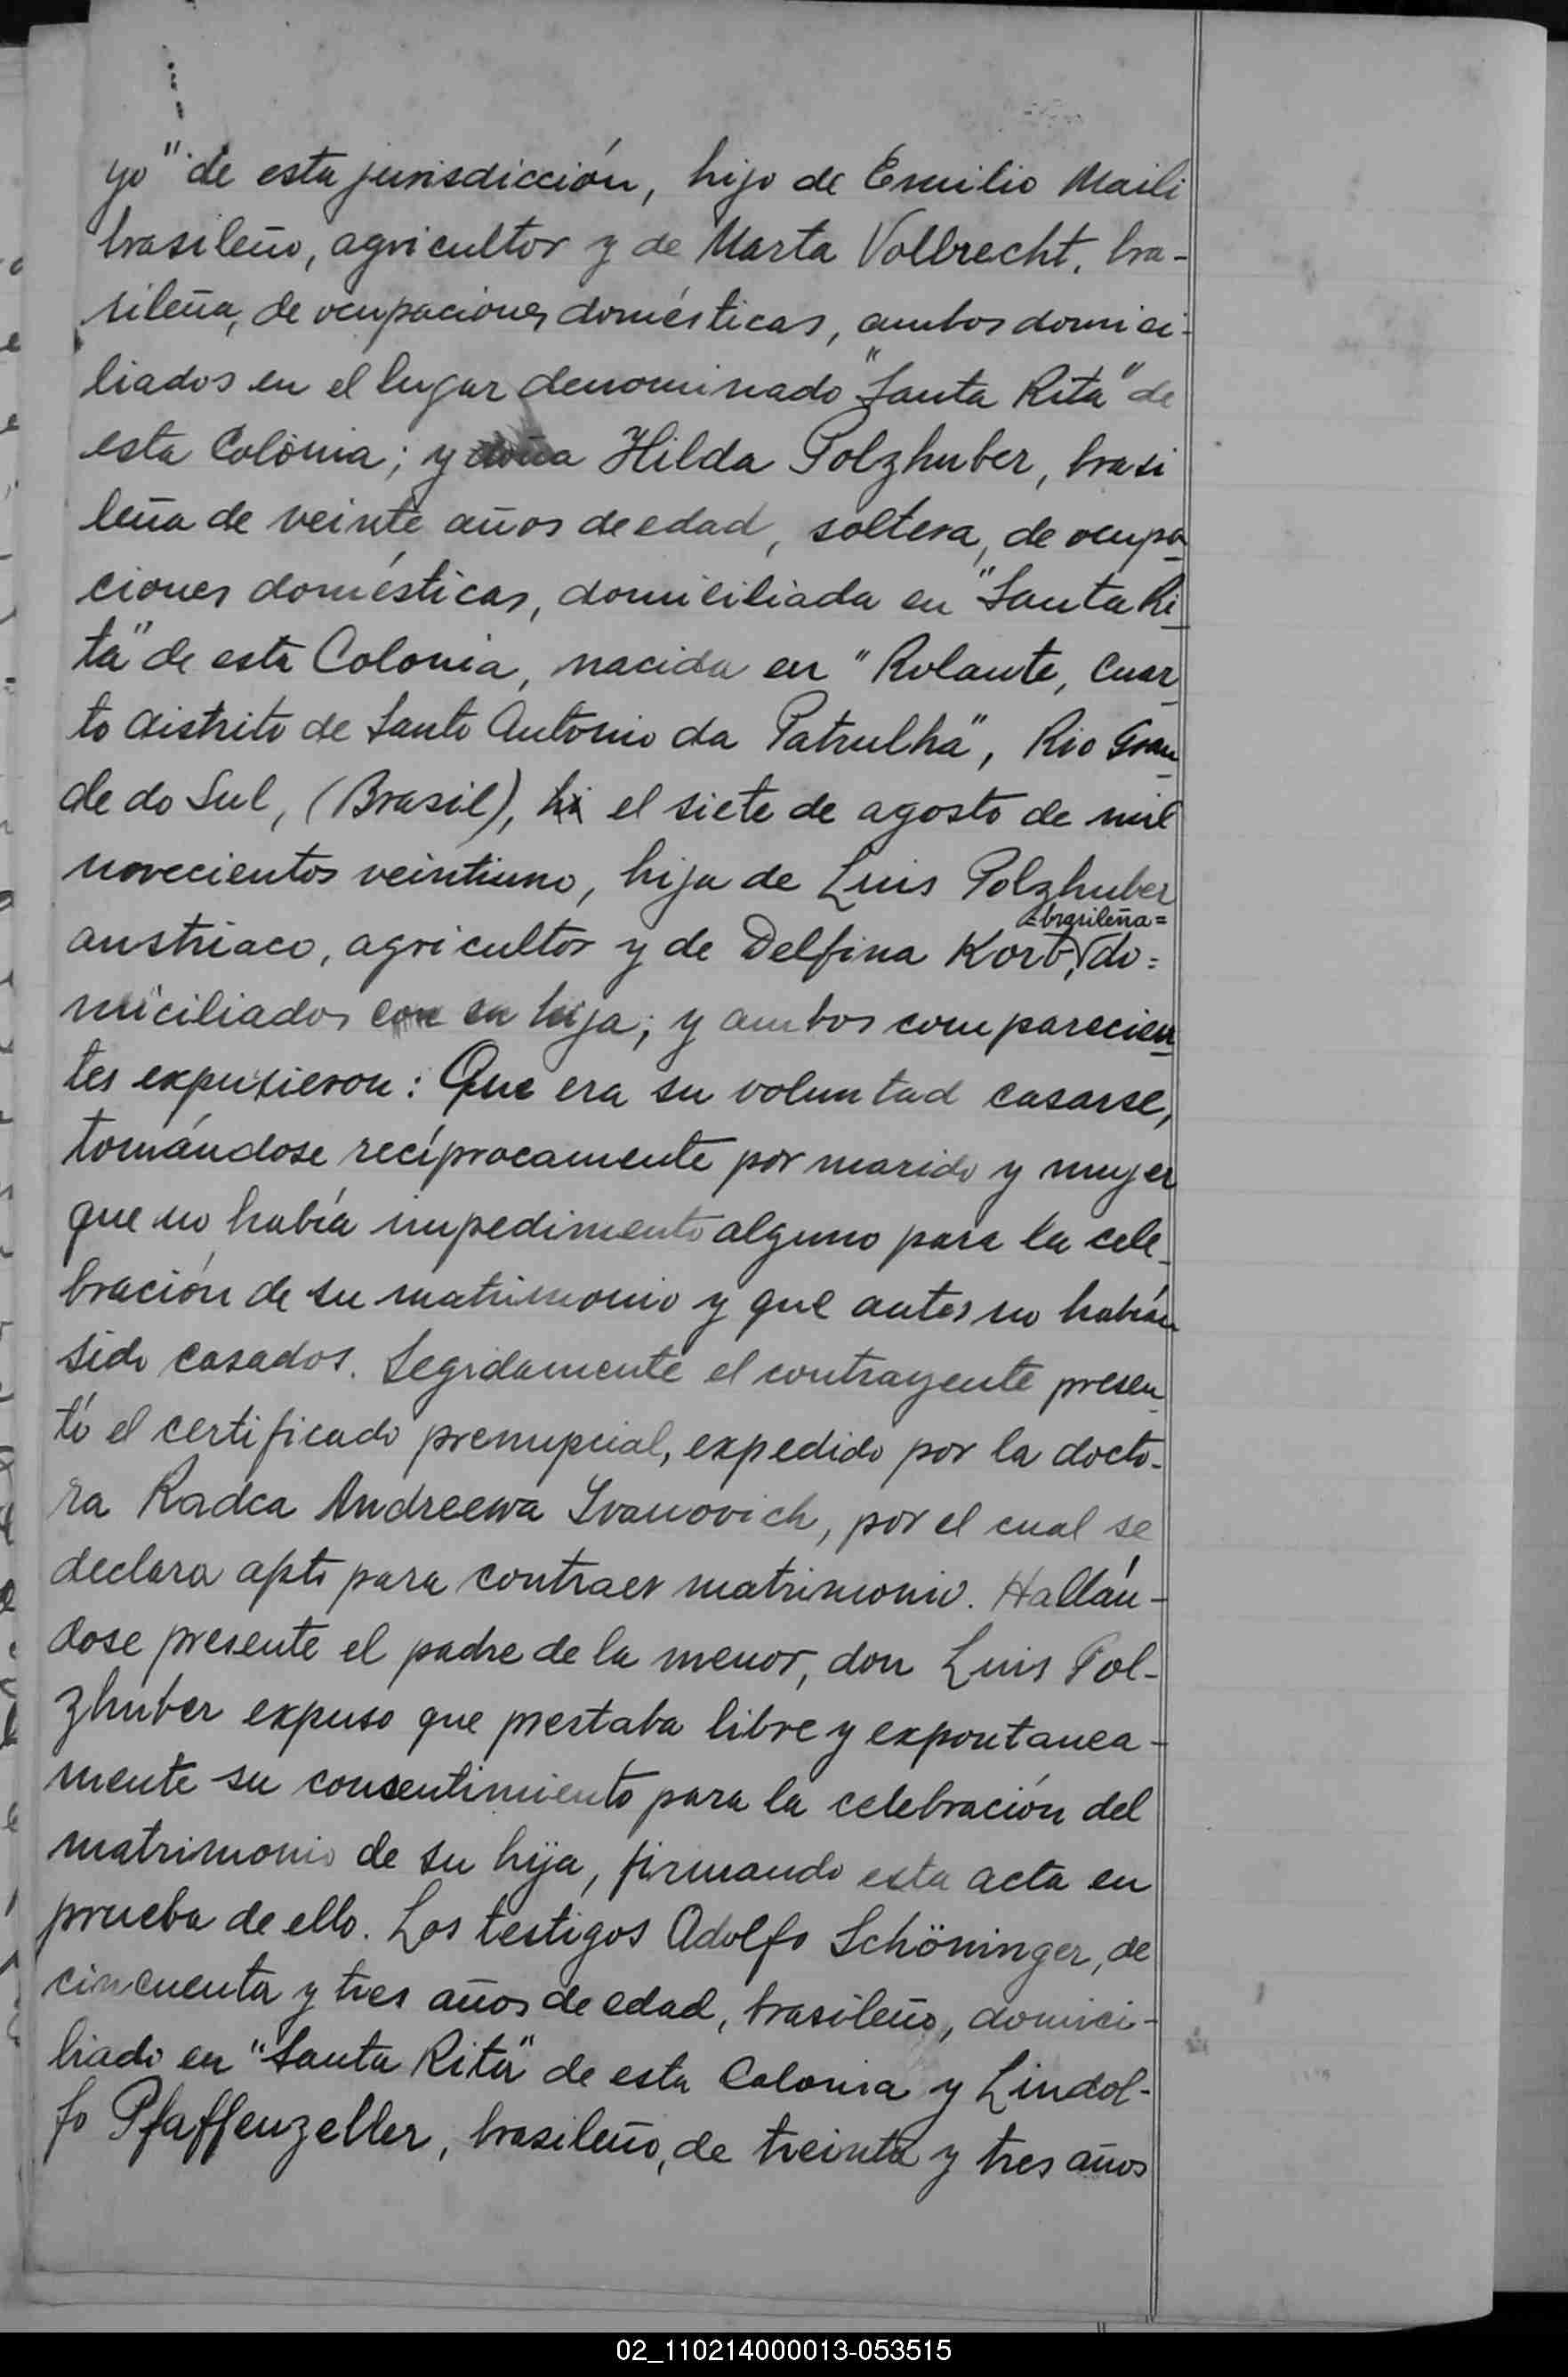 yo" de esta jurisdicción, hijo de Emilio Maili
brasileño, agricultor y de Marta Vollbrecht, bra-
sileña, de ocupaciones domésticas, ambos domici-
liados en el lugar denominado "Santa Rita" de
esta Colonia; y doña Hilda Polzhuber, brasi
leña de veinte años de edad, soltera, de ocupa
ciones domésticas, domiciliada en "Santa Ri
ta" de esta Colonia, nacida en "Rolante, Cuar
to distrito de Santo Antonio da Patrulha", Rio Gran
de do Sul, (Brasil), hi el siete de agosto de mil
novecientos veintiuno, hija de Luis Polzhuber
=brasileña=
austriaco, agricultor y de Delfina Korb, do=
miciliados con su hija; y ambos comparecien
tes expusieron: Que era su voluntad casarse,
tomándose recíprocamente por marido y mujer
que no había impedimento alguno para la cele
bración de su matrimonio y que antes no habían
sido casados. Segidamente el contrayente presen
tó el certificado prenupcial, expedido por la docto-
ra Radca Andreewa Ivanovich, por el cual se
declara apto para contraer matrimonio. Hallán-
dose presente el padre de la menor, don Luis Pol-
zhuber expuso que prestaba libre y expontanea-
mente su consentimiento para la celebración del
matrimonio de su hija, firmando esta acta en
prueba de ello. Los testigos Adolfo Schöninger, de
cincuenta y tres años de edad, brasileño, domici-
liado en "Santa Rita" de esta Colonia y Lindol-
fo Pfaffenzeller, brasileño, de treinta y tres años
02_110214000013-053515